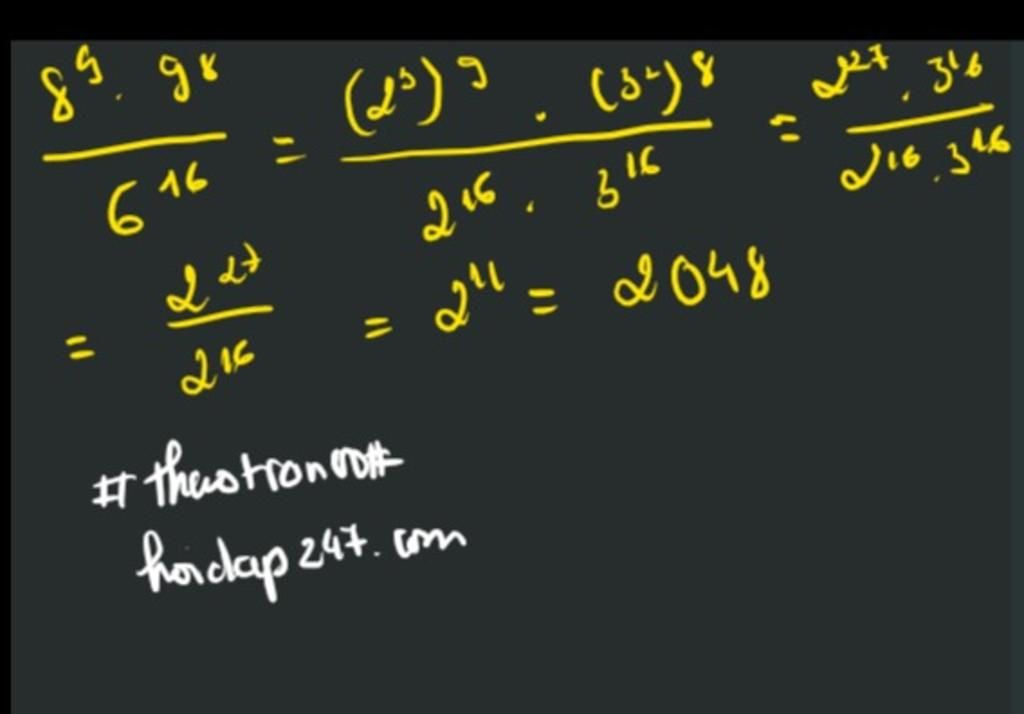 8^9 . 9^8 / 6^16 = (2^3)^9 . (3^2)^8 / 2^16 . 3^16 = 2^27 . 3^16 / 2^16 . 3^16
= 2^27 / 2^16 = 2^11 = 2048
hoidap247.com